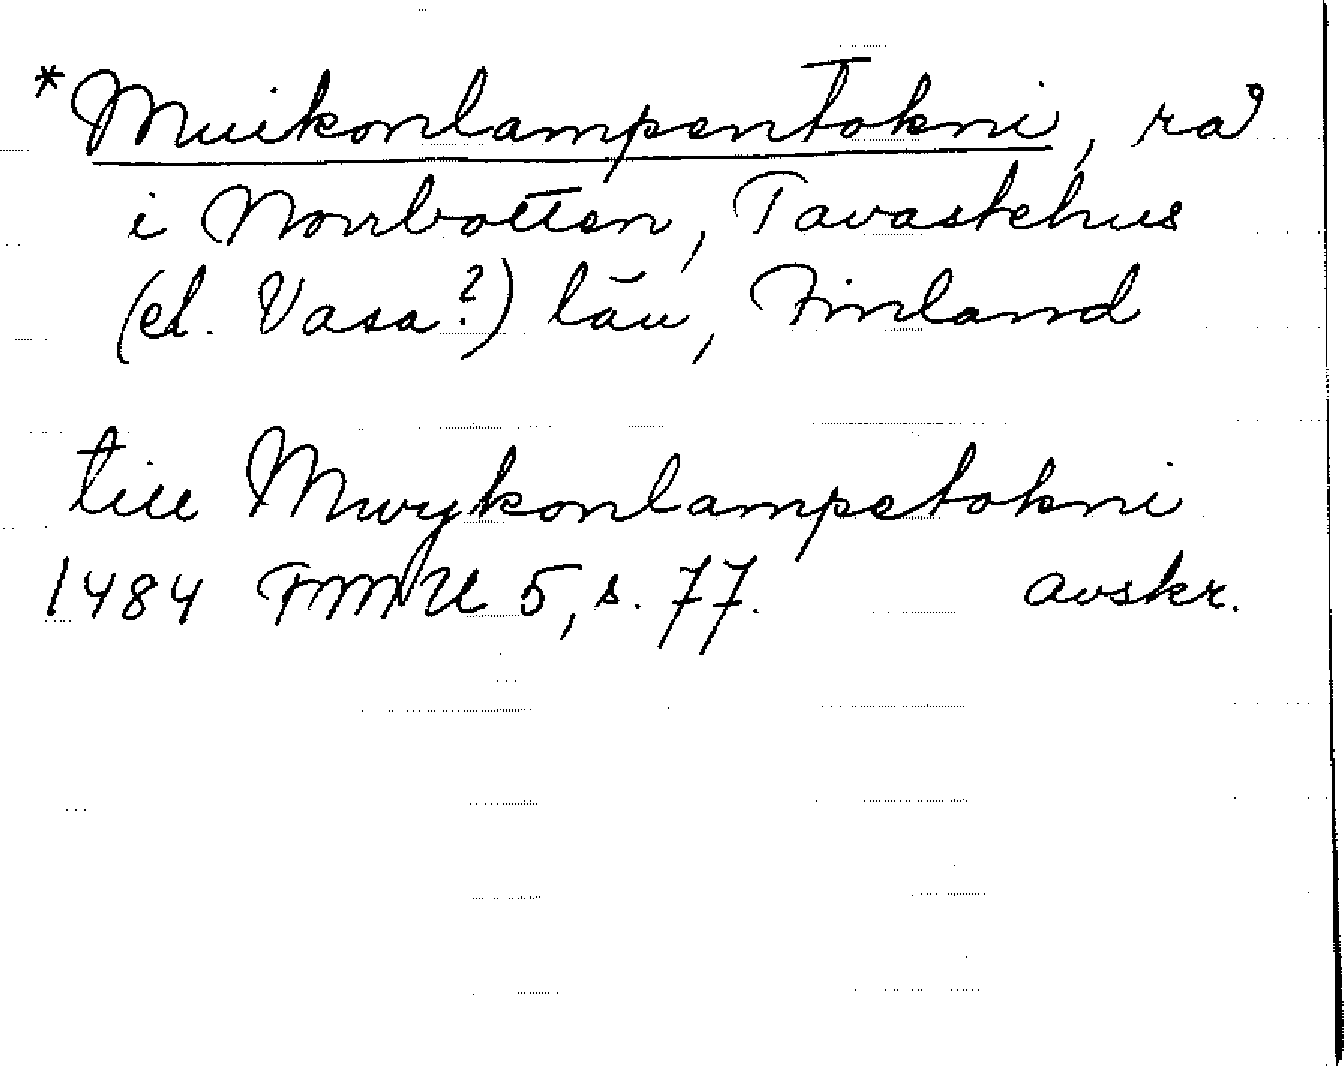 *Muikonlampentokni, rå
i Norrbotten, Tavastehus
(el. Vasa?) län, Finland
till Mwykonlampetokni
1484 FMU 5, s. 77. avskr.